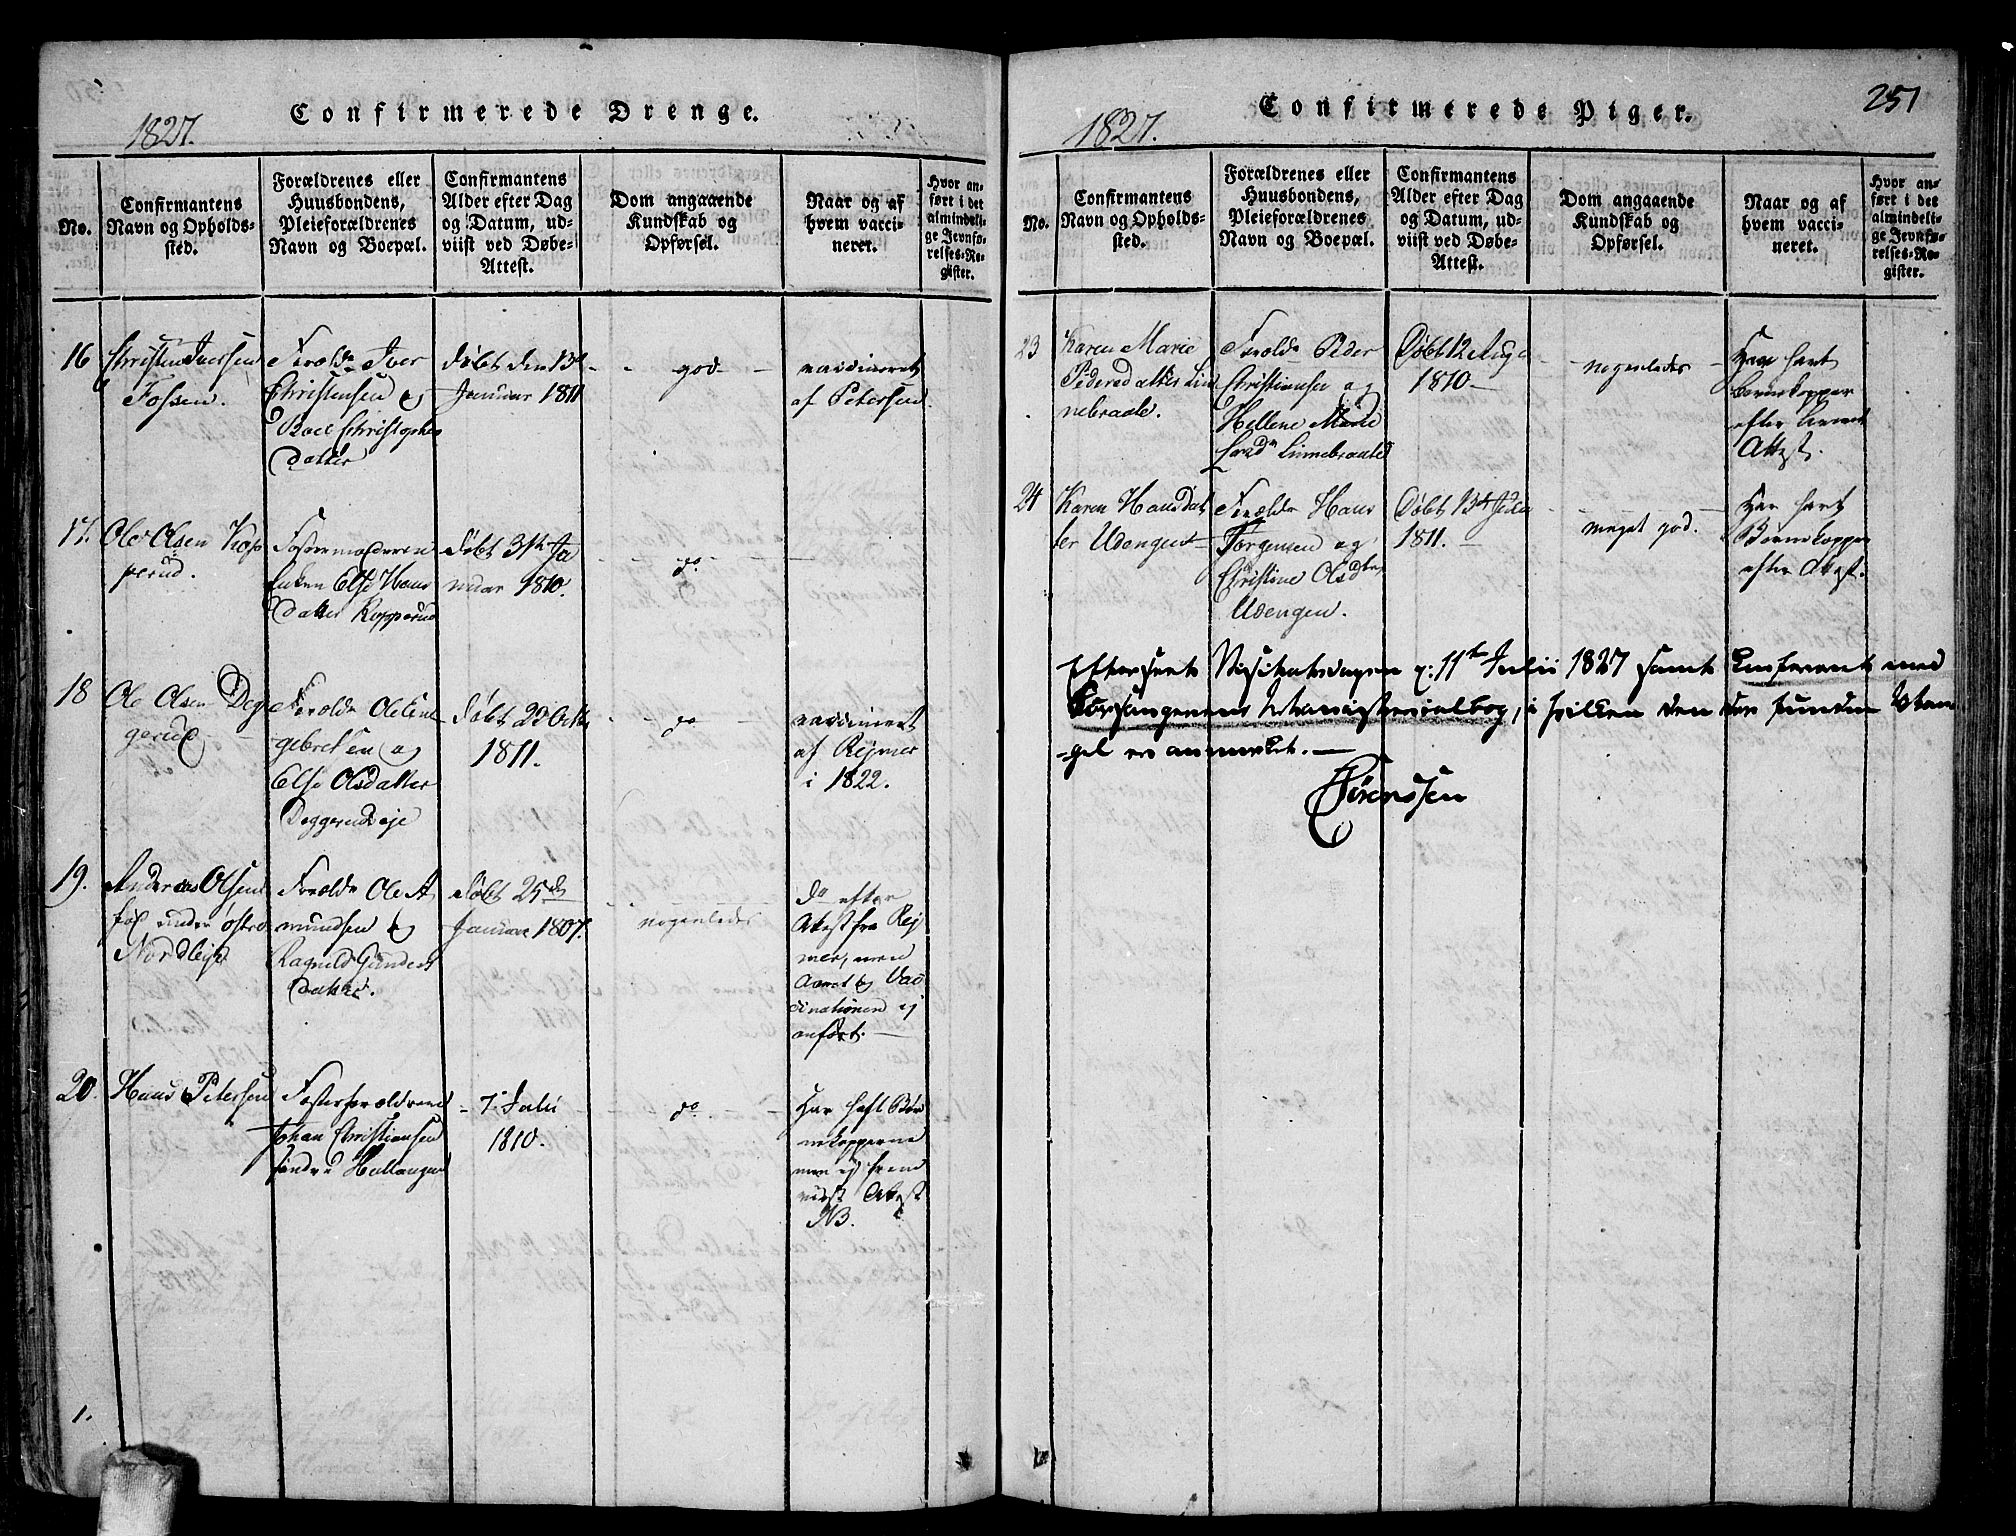 Confirmerede Drenge.
1827.
No.
Confirmantens
Navn og Opholds-
sted.
Forældrenes eller
Huusbondens,
Pleieforældrenes
Navn og Boepæl.
Confirmantens
Alder efter Dag
og Datum, ud-
viist ved Døbe-
Attest.
Dom angaaende
Kundskab og
Opførsel.
Naar og af
hvem vacci-
neret.
Hvor an-
ført i det
almindeli-
ge Jevnfø-
relses-Re-
gister.
16
Christen Iversen
Fossen.
Forælde Iver
Christensen og
Christopher
datter
døbt den 13de
Januar 1811
god
vaccineret
af Petersen.
17.
Ole Olsen Kop
perud.
Fostermoderen
Enken Else Hans
datter Kopperud
døbt 31te Ja
nuar 1810.
do
18
Ole Olsen Deg
gerud
Forælde Ole Ene
gebretsen og
Else Olsdatter
Deggerudseje
døbt 20 Octbr
1811.
do
vaccineret
af Rejmer
i 1822.
19.
Anders Olsen
under østre
Nordby
Forælde Ole A
mundsen og
Ragnild Gunders
datter.
døbt 25de
Januar 1807.
nogenledes
do efter
Attest fra Rej
mer, men
Aaret og Vac
cinationen ej
anført.
20.
Hans Petersen
Fosterforældrene
Johan Christiansen
søndre Hallangen
7. Julii
1810.
do
Har haft Bør
nekopperne
men ej frem
viist Attest
NB.
1.
Confirmerede Piger.
251
1827.
No.
Confirmantens
Navn og Opholds-
sted.
Forældrenes eller
Huusbondens,
Pleieforældrenes
Navn og Boepæl.
Confirmantens
Alder efter Dag
og Datum, ud-
viist ved Døbe-
Attest.
Dom angaaende
Kundskab og
Opførsel.
Naar og af
hvem vacci-
neret.
Hvor an-
ført i det
almindeli-
ge Jevnfø-
relses-Re-
gister.
23
Karen Marie
Pedersdatter Lin
nebraate.
Forælde Peder
Christiansen og
Hellene Marie
Linnebraate
Døbt 12 Aug
1810
nogenledes
Har havt
Børnekopper
efter
Attest.
24
Karen Hansdat
ter Udengen
Forælde Hans
Jørgensen og
Christine Olsdtr
Udengen.
Døbt 13de
1811.
meget god.
Har havt
Børnekopper
efter Attest.
Efterseet Visitatsdagen d: 11te Julii 1827 samt Confereret med
Ministerialbog, i hvilken den der fundne Man
gel er anmerket.
Sørenssen